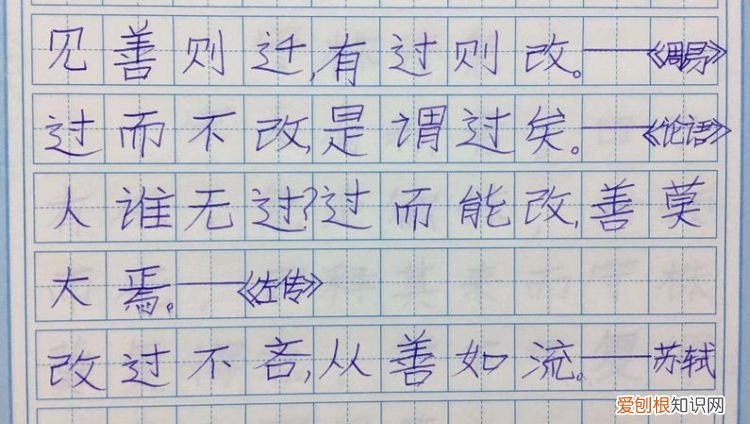 见善则迁,有过则改。——《周易》
过而不改,是谓过矣。——《论语》
人谁无过?过而能改,善莫
大焉。——《左传》
改过不吝,从善如流。——苏轼
爱刨根知识网